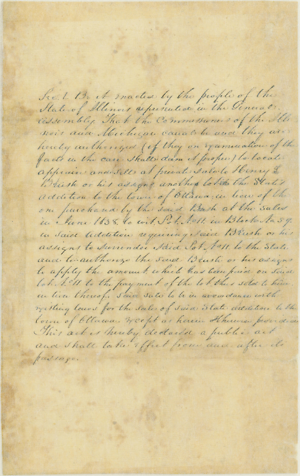 Sec 1. Be it enacted by the people of the
State of Illinois represented in the General
Assembly That the Commissioners of the Illi
nois and Michigan canal be and they are
hereby authorized (if they on examination of the
facts in the case shall deem it proper) to locate
appraise and sell at private sale to Henry L
Brush or his assigns another lot in the State's
addition to the town of Ottawa in lieu of the
one purchased by the said Brush at the sales
in June 1852 to wit Lot No 11 in Block No
in said addition requiring said Brush or his
assigns to surrender said Lot No 11 to the State
and to authorize the said Brush or his assigns
to apply the amount which has been paid on said
Lot No 11 to the payment of the lot thus sold to him
in lieu thereof said sale to be in accordance with
existing laws for the sale of said State addition to the
town of Ottawa except as herein otherwise provided
This act is hereby declared a public act
and shall take effect from and after its
passage